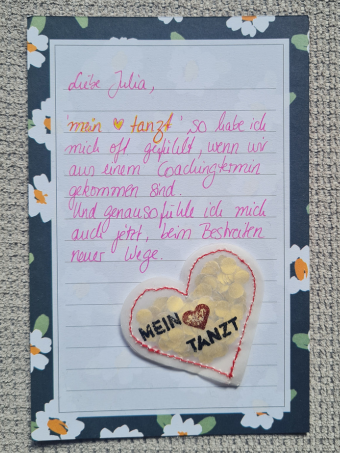 Liebe Julia,
'mein ♡ tanzt', so habe ich
mich oft gefühlt, wenn wir
aus einem Coachingtermin
gekommen sind.
Und genauso fühle ich mich
auch jetzt, beim Bestreiten
neuer Wege.
MEIN ♥
TANZT